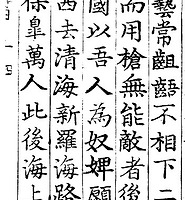 藝常齟齬不相下二
而用槍無能敵者後
國以吾人為奴婢願
西去清海新羅海路
保臯萬人此後海上